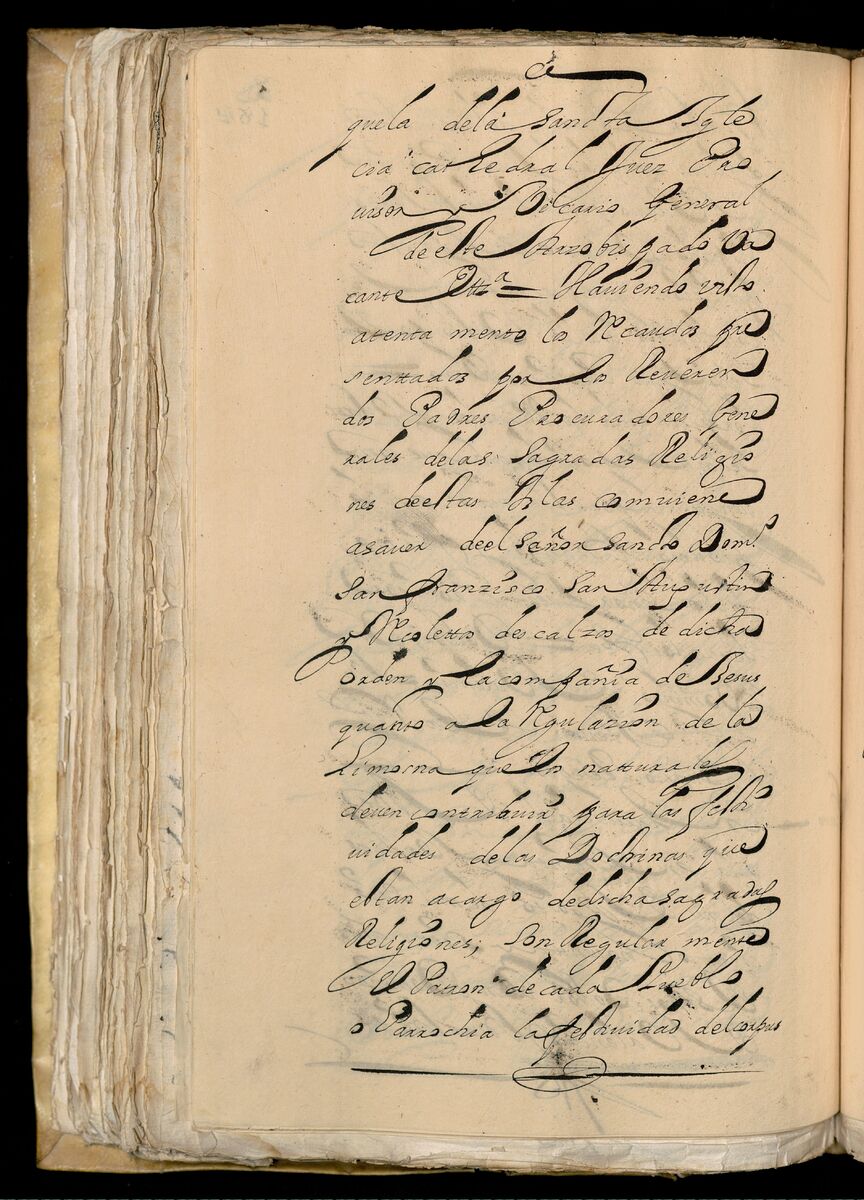 quela dela sancta Ygle
cia cathedral Juez Pro
uisor y Vicario General
de este Arzobispado Va
cante Ettª = Hauiendo visto
atenta mente lo Recaudos pre
senttados por los Reueren
dos Padres Procuradores Gene
rales delas sagradas Religio
nes deestas Yslas comuiene
asauer deel señor sancto Domº
san franzisco san Augustin
y Recoletto descalzos de dicha
orden y la compañia de Jesus
quanto a la Regulazion de la
Limosna que los natturales
deuen contribuir para las festi
uidades delas Doctrinas que
estan acargo dedicha sagradas
Religiones; son Regular mente
El Patron de cada Pueblo
o Parrochia la festiuidad del corpus